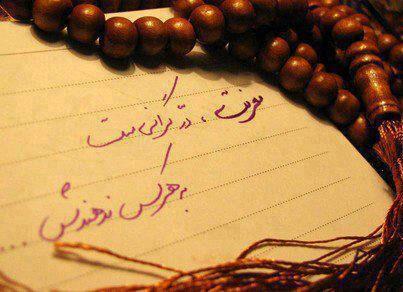 معرفت ، دُرّ گرانی ست
به هر کس ندهندش ...